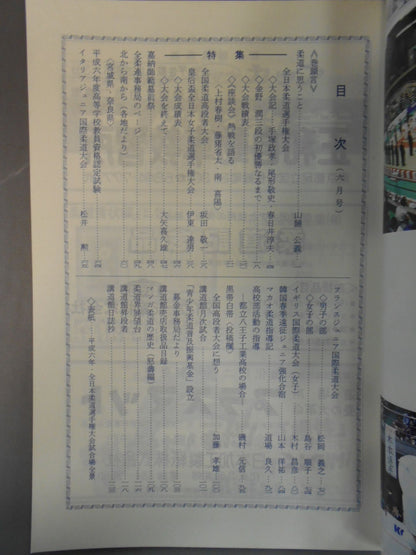 目次（六月号）
＜巻頭言＞
柔道に思うこと 山 公義
特集
全日本柔道選手権大会
◇大会記 手塚政孝 尾形敬史 春日井淳夫
◇金野潤三段の初優勝なるまで
◇大会戦績表
◇〈座談会〉熱戦を語る
（上村春樹 藤猪省太 南喜陽）
全国柔道高段者大会 坂田敬一
皇后盃全日本女子柔道選手権大会 伊東達男
◇大会成績表
◇大会を終えて 大矢喜久雄
嘉納師範墓前祭
全柔連事務局のページ
北から南から（各地だより）
（宮城県・奈良県）
平成六年度高等学校教員資格認定試験
イタリアジュニア国際柔道大会 松井勲
フランスジュニア国際柔道大会
◇男子の部 松岡義之
◇女子の部 島谷順子
イギリス国際柔道大会（女子） 木村昌彦
韓国春季遠征ジュニア強化合宿 山本洋祐
マカオ柔道指導記 道場良久
高校部活動の指導
―都立八王子工業高校の場合 磯村元信
黒帯白帯（投稿欄）
全国高段者大会に想う 加藤孝雄
講道館月次試合
「青少年柔道普及振興基金」設立
募金事務局だより
講道館売店取扱品目録
マンガ柔道の歴史（怒濤編）
柔道界展望台
講道館昇段者
講道館日誌抄
◇表紙―平成六年 全日本柔道選手権大会試合場全景